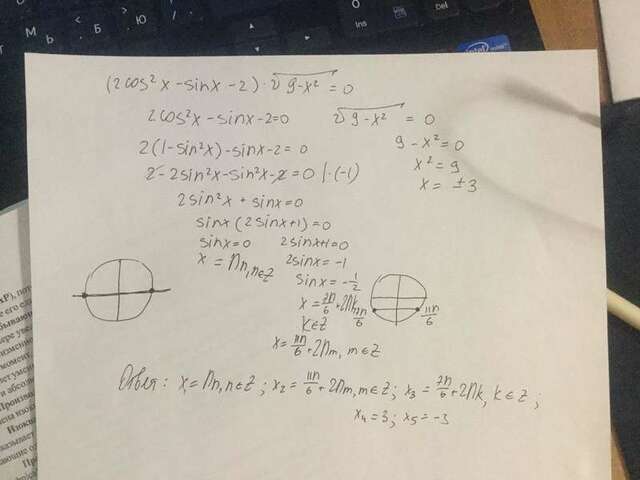 Ins
Del
intel
М
Б
Ю
(2cos²x - sinx - 2) · √9-x² = 0
2cos²x - sinx - 2 = 0 √9-x² = 0
2(1-sin²x) - sinx - 2 = 0 9-x² = 0
2 - 2sin²x - sin²x - 2 = 0 |·(-1) x² = 9
2sin²x + sinx = 0 x = ±3
sinx(2sinx+1) = 0
sinx = 0 2sinx+1 = 0
x = Πn, n∈Z 2sinx = -1
sinx = -1/2
x = 7Π/6 + 2Πk 7Π/6 11Π/6
k∈Z
x = 11Π/6 + 2Πm, m∈Z
Ответ: x₁ = Πn, n∈Z; x₂ = 11Π/6 + 2Πm, m∈Z; x₃ = 7Π/6 + 2Πk, k∈Z;
x₄ = 3; x₅ = -3